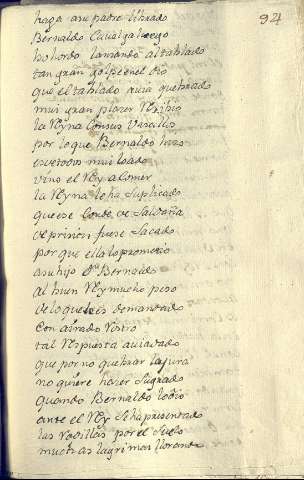 94
haga a su padre librado
Bernaldo Cavalga luego
bohordo lansando al tablado
tan gran golpe en el dio
que el tablado avia quebrado
mui gran plazer Resibio
la Reyna Con sus Vasallos
por lo que Bernaldo hizo
es de todos mui loado
vino el Rey a Comer
la Reyna le ha Suplicado
que ese Conde de Saldaña
de prision fuese Sacado
por que ella lo prometio
a su hijo Dn Bernaldo
al buen Rey mucho peso
de lo que les demandado
Con airado Rostro
tal Respuesta avia dado
que por no quebrar la jura
no quiere hazer Su grado
quando Bernaldo lo oio
ante el Rey Se ha presentado
las Rodillas por el Suelo
muchas lagrimas llorando